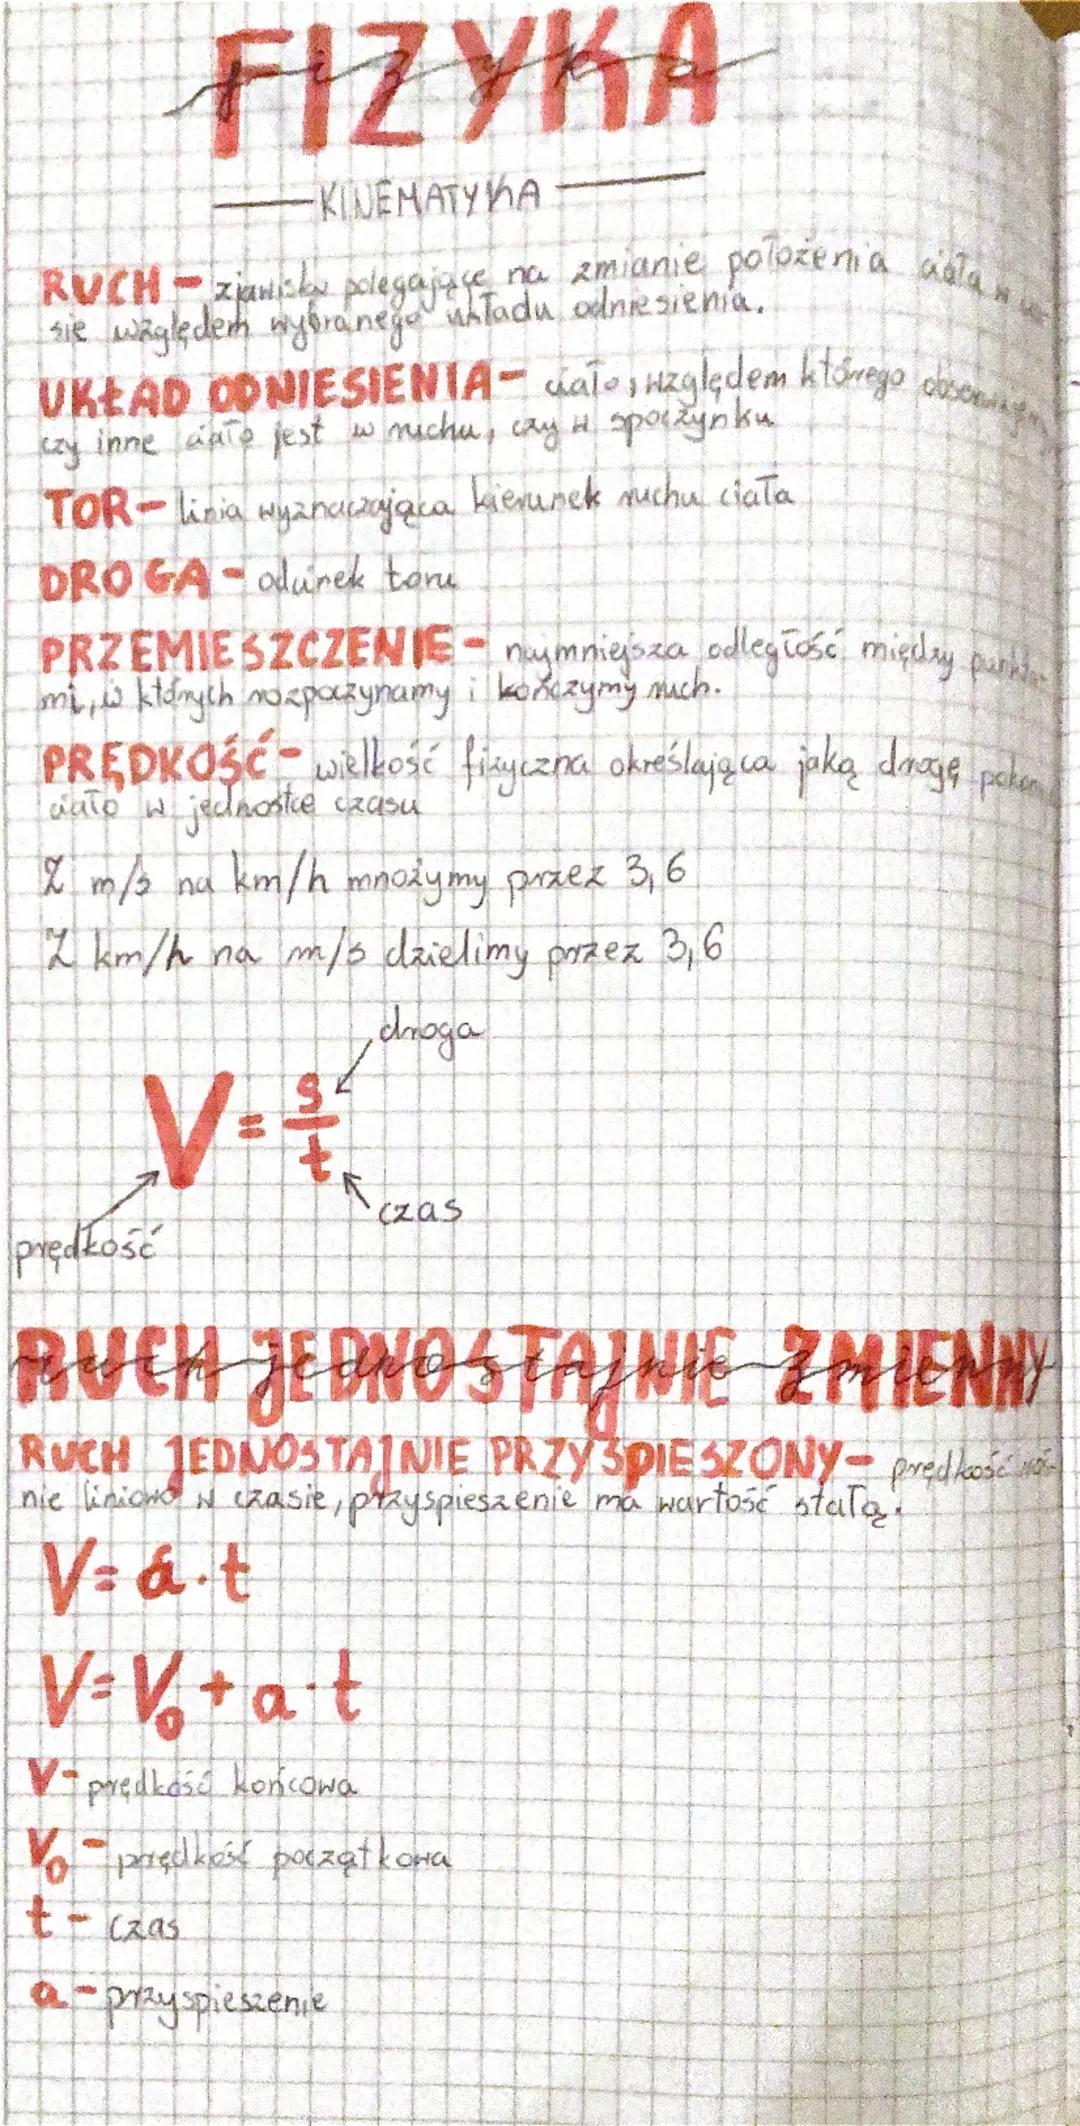 FIZYKA
fizyka
KINEMATYKA
RUCH - zjawisko polegające na zmianie położenia ciała w
się względem wybranego układu odniesienia.
UKŁAD ODNIESIENIA - ciało, względem którego
czy inne ciało jest w ruchu, czy w spoczynku
TOR - linia wyznaczająca kierunek ruchu ciała
DROGA - odcinek toru
PRZEMIESZCZENIE - najmniejsza odległość między
mi, w których rozpoczynamy i kończymy ruch.
PRĘDKOŚĆ - wielkość fizyczna określająca jaką drogę
ciało w jednostce czasu
Z m/s na km/h mnożymy przez 3,6
Z km/h na m/s dzielimy przez 3,6
droga
V = s/t
czas
prędkość
RUCH JEDNOSTAJNIE ZMIENNY
ruch jednostajnie zmienny
RUCH JEDNOSTAJNIE PRZYŚPIESZONY - prędkość roś-
nie liniowo w czasie, przyspieszenie ma wartość stałą.
V = a · t
V = V₀ + a · t
V - prędkość końcowa
V₀ - prędkość początkowa
t - czas
a - przyspieszenie